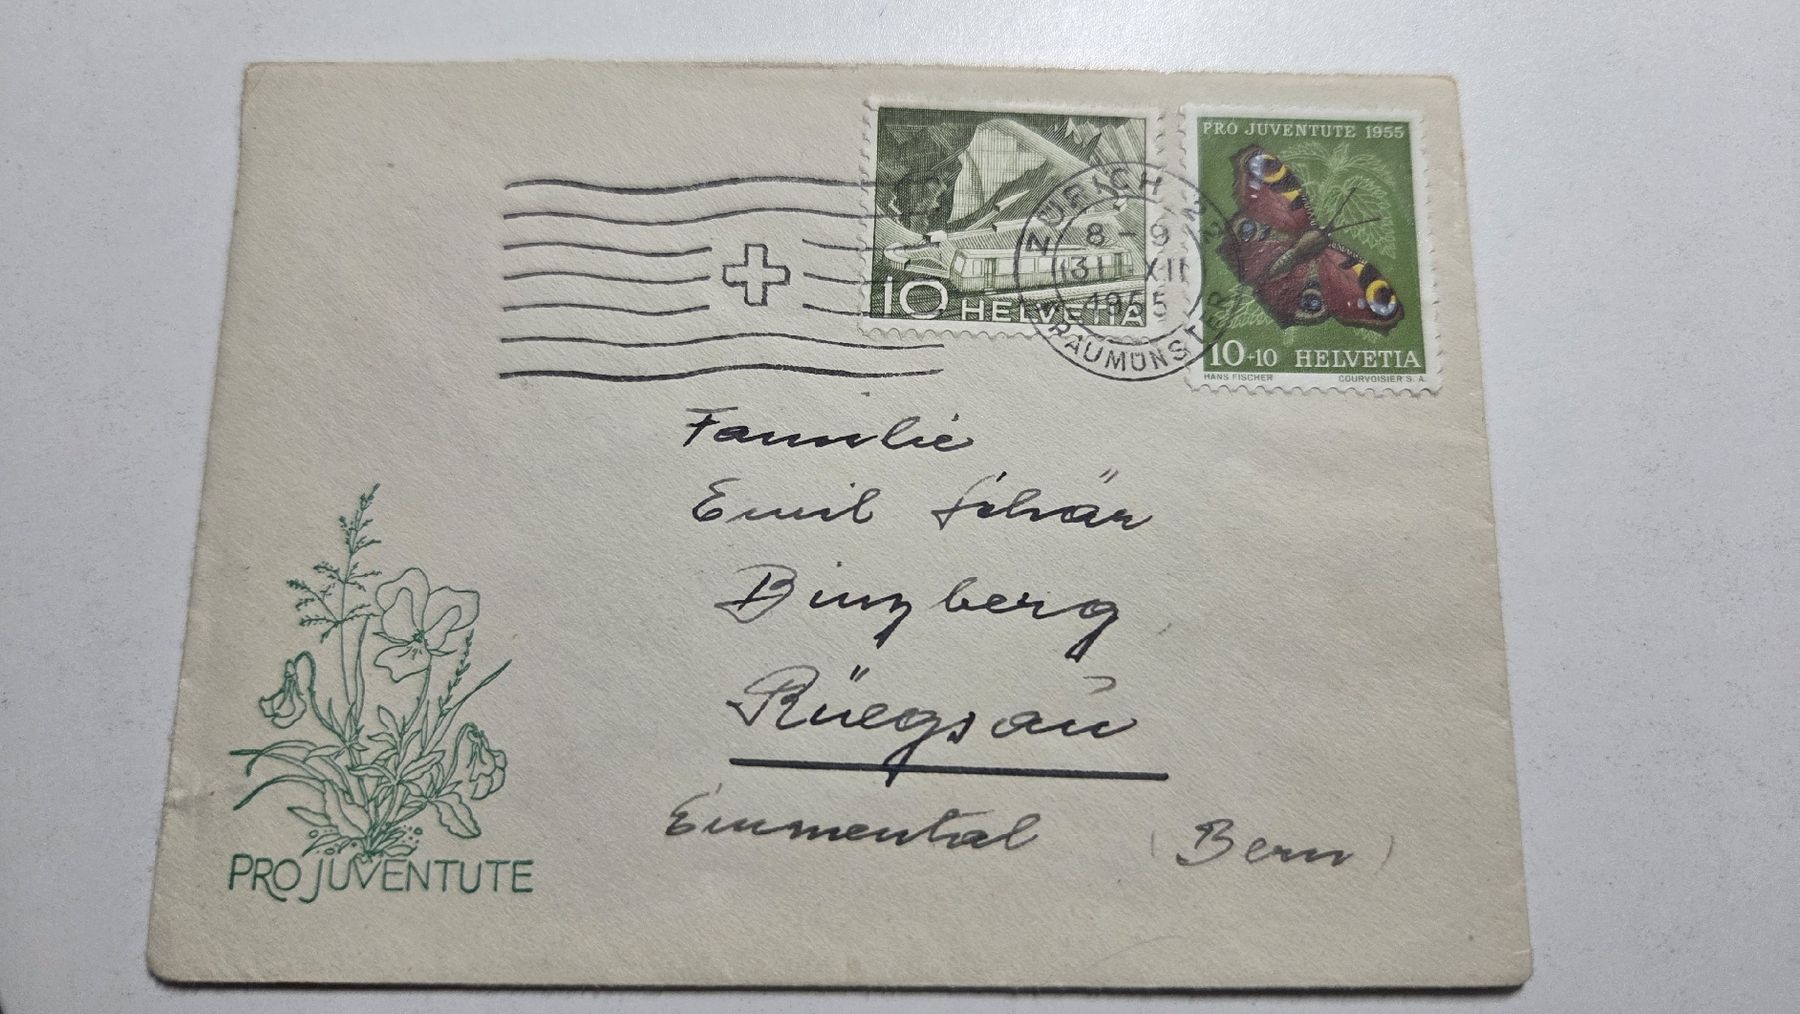 PRO JUVENTUTE 1955
10+10 HELVETIA
HANS FISCHER COURVOISIER S. A.
10 HELVETIA
ZÜRICH
8-9
31 XII
1955
FRAUMÜNSTER
Familie
Emil Schär
Binzberg
Rüegsau
Emmental (Bern)
PRO JUVENTUTE